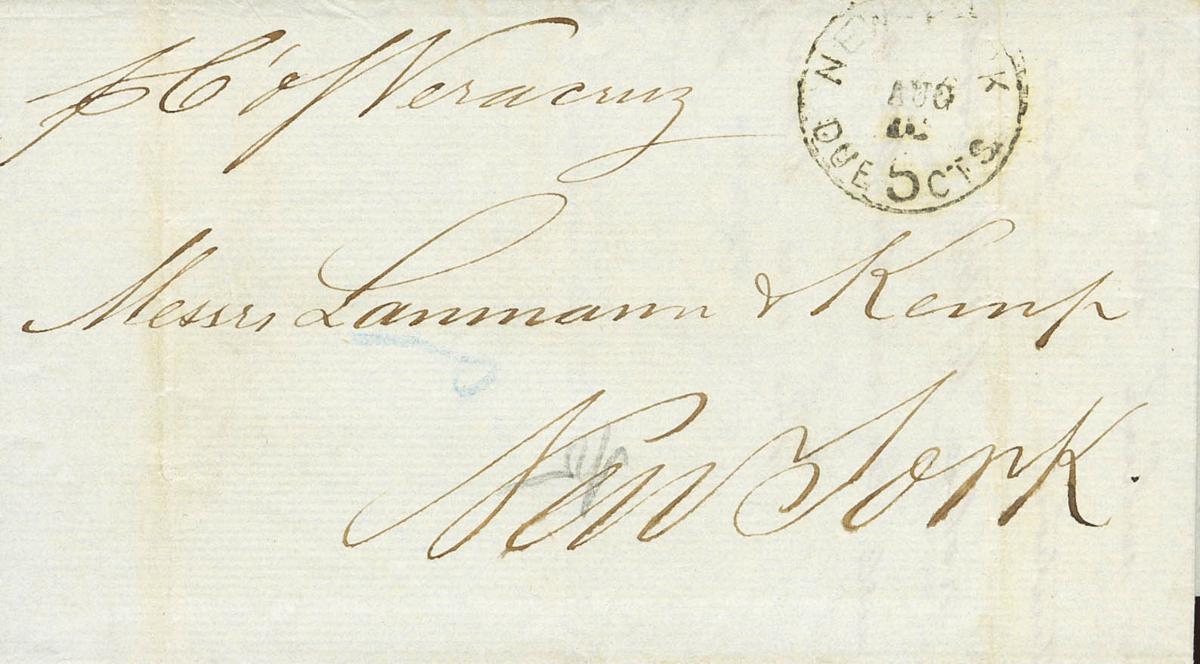 p C of Veracruz
NEW YORK
AUG
DUE 5 CTS
Messrs Lanmann & Kemp
New York.